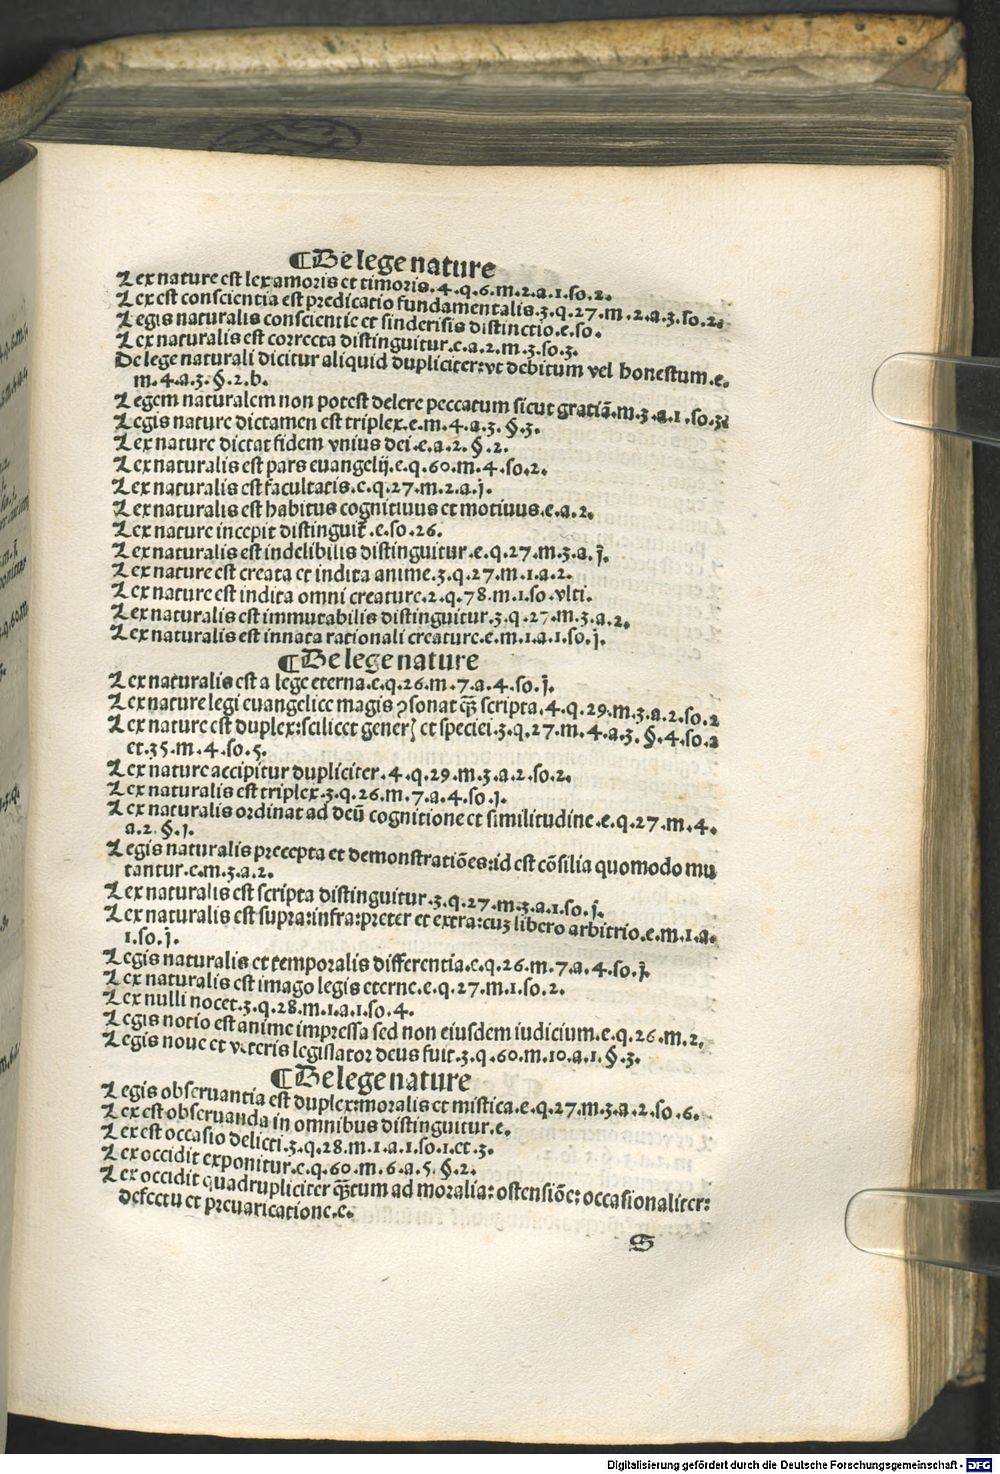 ¶De lege nature
Lex nature est lex amoris et timoris.4.q.6.m.2.a.1.so.2.
Lex est conscientia est predicatio fundamentalis.3.q.27.m.2.a.3.so.2.
Legis naturalis conscientie et sinderisis distinctio.e.so.
Lex naturalis est correcta distinguitur.e.a.2.m.3.so.3.
De lege naturali dicitur aliquid dupliciter:vt debitum vel honestum.e.
m.4.a.3.§.2.b.
Legem naturalem non potest delere peccatum sicut gratiā.m.3.a.1.so.3.
Legis nature dictamen est triplex.e.m.4.a.3.§.3.
Lex nature dictat fidem vnius dei.e.a.2.§.2.
Lex naturalis est pars euangelij.e.q.60.m.4.so.2.
Lex naturalis est facultatis.e.q.27.m.2.a.j.
Lex naturalis est habitus cognitiuus et motiuus.e.a.2.
Lex nature incepit distinguit̄.e.so.26.
Lex naturalis est indelibilis distinguitur.e.q.27.m.3.a.j.
Lex nature est creata et indita anime.3.q.27.m.1.a.2.
Lex nature est indita omni creature.2.q.78.m.1.so.vlti.
Lex naturalis est immutabilis distinguitur.3.q.27.m.3.a.2.
Lex naturalis est innata rationali creature.e.m.1.a.1.so.j.
¶De lege nature
Lex naturalis est a lege eterna.e.q.26.m.7.a.4.so.j.
Lex nature legi euangelice magis ꝯsonat qȝ̄ scripta.4.q.29.m.3.a.2.so.2
Lex nature est duplex:scilicet generꝭ et speciei.3.q.27.m.4.a.3.§.4.so.2
et.35.m.4.so.5.
Lex nature accipitur dupliciter.4.q.29.m.3.a.2.so.2.
Lex naturalis est triplex.3.q.26.m.7.a.4.so.j.
Lex naturalis ordinat ad deū cognitione et similitudine.e.q.27.m.4.
a.2.§.j.
Legis naturalis precepta et demonstratiōes:id est cōsilia quomodo mu
tantur.e.m.3.a.2.
Lex naturalis est scripta distinguitur.3.q.27.m.3.a.1.so.j.
Lex naturalis est supra:infra:preter et extra:cuȝ libero arbitrio.e.m.1.a.
1.so.j.
Legis naturalis et temporalis differentia.e.q.26.m.7.a.4.so.j.
Lex naturalis est imago legis eterne.e.q.27.m.1.so.2.
Lex nulli nocet.3.q.28.m.1.a.1.so.4.
Legis notio est anime impressa sed non eiusdem iudicium.e.q.26.m.2.
Legis noue et veteris legislator deus fuit.3.q.60.m.10.a.1.§.3.
¶De lege nature
Legis obseruantia est duplex:moralis et mistica.e.q.27.m.3.a.2.so.6.
Lex est obseruanda in omnibus distinguitur.e.
Lex est occasio delicti.3.q.28.m.1.a.1.so.1.et.3.
Lex occidit exponitur.e.q.60.m.6.a.5.§.2.
Lex occidit quadrupliciter qȝ̄tum ad moralia:ostensiōe:occasionaliter:
defectu et preuaricatione.e.
S
Digitalisierung gefördert durch die Deutsche Forschungsgemeinschaft - DFG